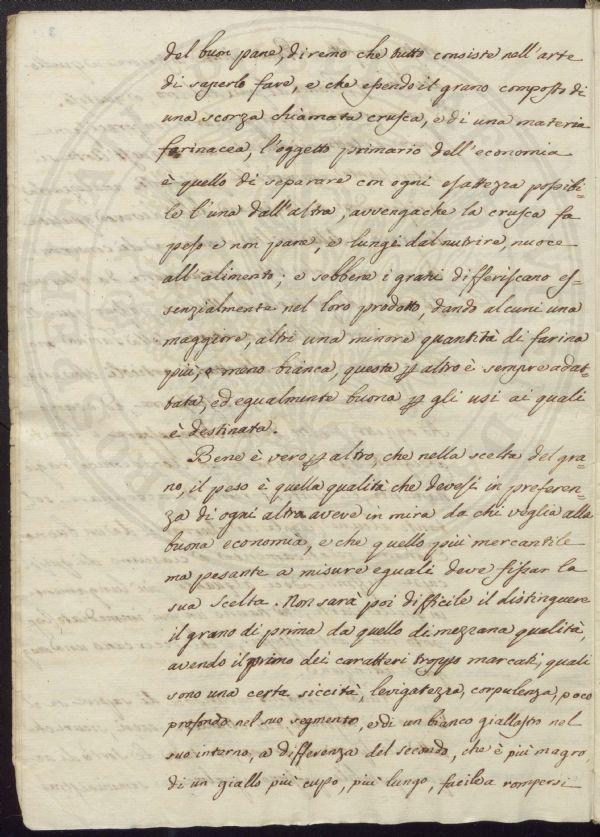 del buon pane, diremo che tutto consiste nell'arte
di saperlo fare, e che essendo il grano composto di
una scorza chiamata crusca, e di una materia
farinacea, l'oggetto primario dell'economia
è quello di separare con ogni esattezza possibi-
le l'una dall'altra, avvengache la crusca fa
peso e non pane, e lungi dal nutrire, nuoce
all'alimento; e sebbene i grani differiscano es-
senzialmente nel loro prodotto, dando alcuni una
maggiore, altri una minore quantità di farina
più, o meno bianca, questa p altro è sempre adat-
tata, ed egualmente buona p gli usi ai quali
è destinata.
Bene è vero p altro, che nella scelta del gra-
no, il peso è quella qualità che devesi in preferen-
za di ogni altra avere in mira da chi veglia alla
buona economia, e che quello più mercantile
ma pesante a misure eguali deve fissar la
sua scelta. Non sarà poi difficile il distinguere
il grano di primo da quello di mezzana qualità,
avendo il primo dei caratteri troppo marcati, quali
sono una certa siccità, levigatezza, corpulenza, poco
profondo nel suo segmento, e di un bianco giallastro nel
suo interno, a differenza del secondo, che è più magro,
di un giallo più cupo, più lungo, facile a rompersi